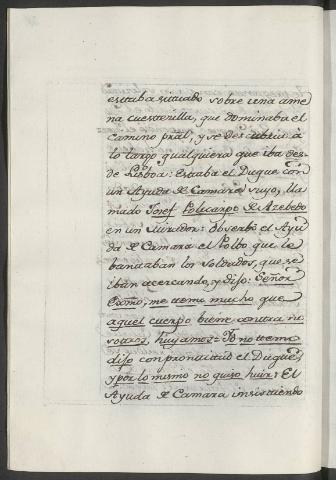 estaba situado sobre una ame
na cuestecilla, que dominaba el
camino pral, y se descubria à
lo largo qualquiera que iba des-
de Lisboa: Estaba el Duque con
un Ayuda de Camara suyo, lla
mado Josef Policarpo de Azebedo
en un Mirador: Observó el Ayu
da de Camara el Polbo que le
bantaban los Soldados, que se
iban acercando, y dijo: Señor
Exmo, me temo mucho que
aquel cuerpo biene contra no
sotros, huyamos = Yo no temo
dijo con prontitud el Duque
y por lo mismo no quiso huir: El
Ayuda de Camara insistiendo